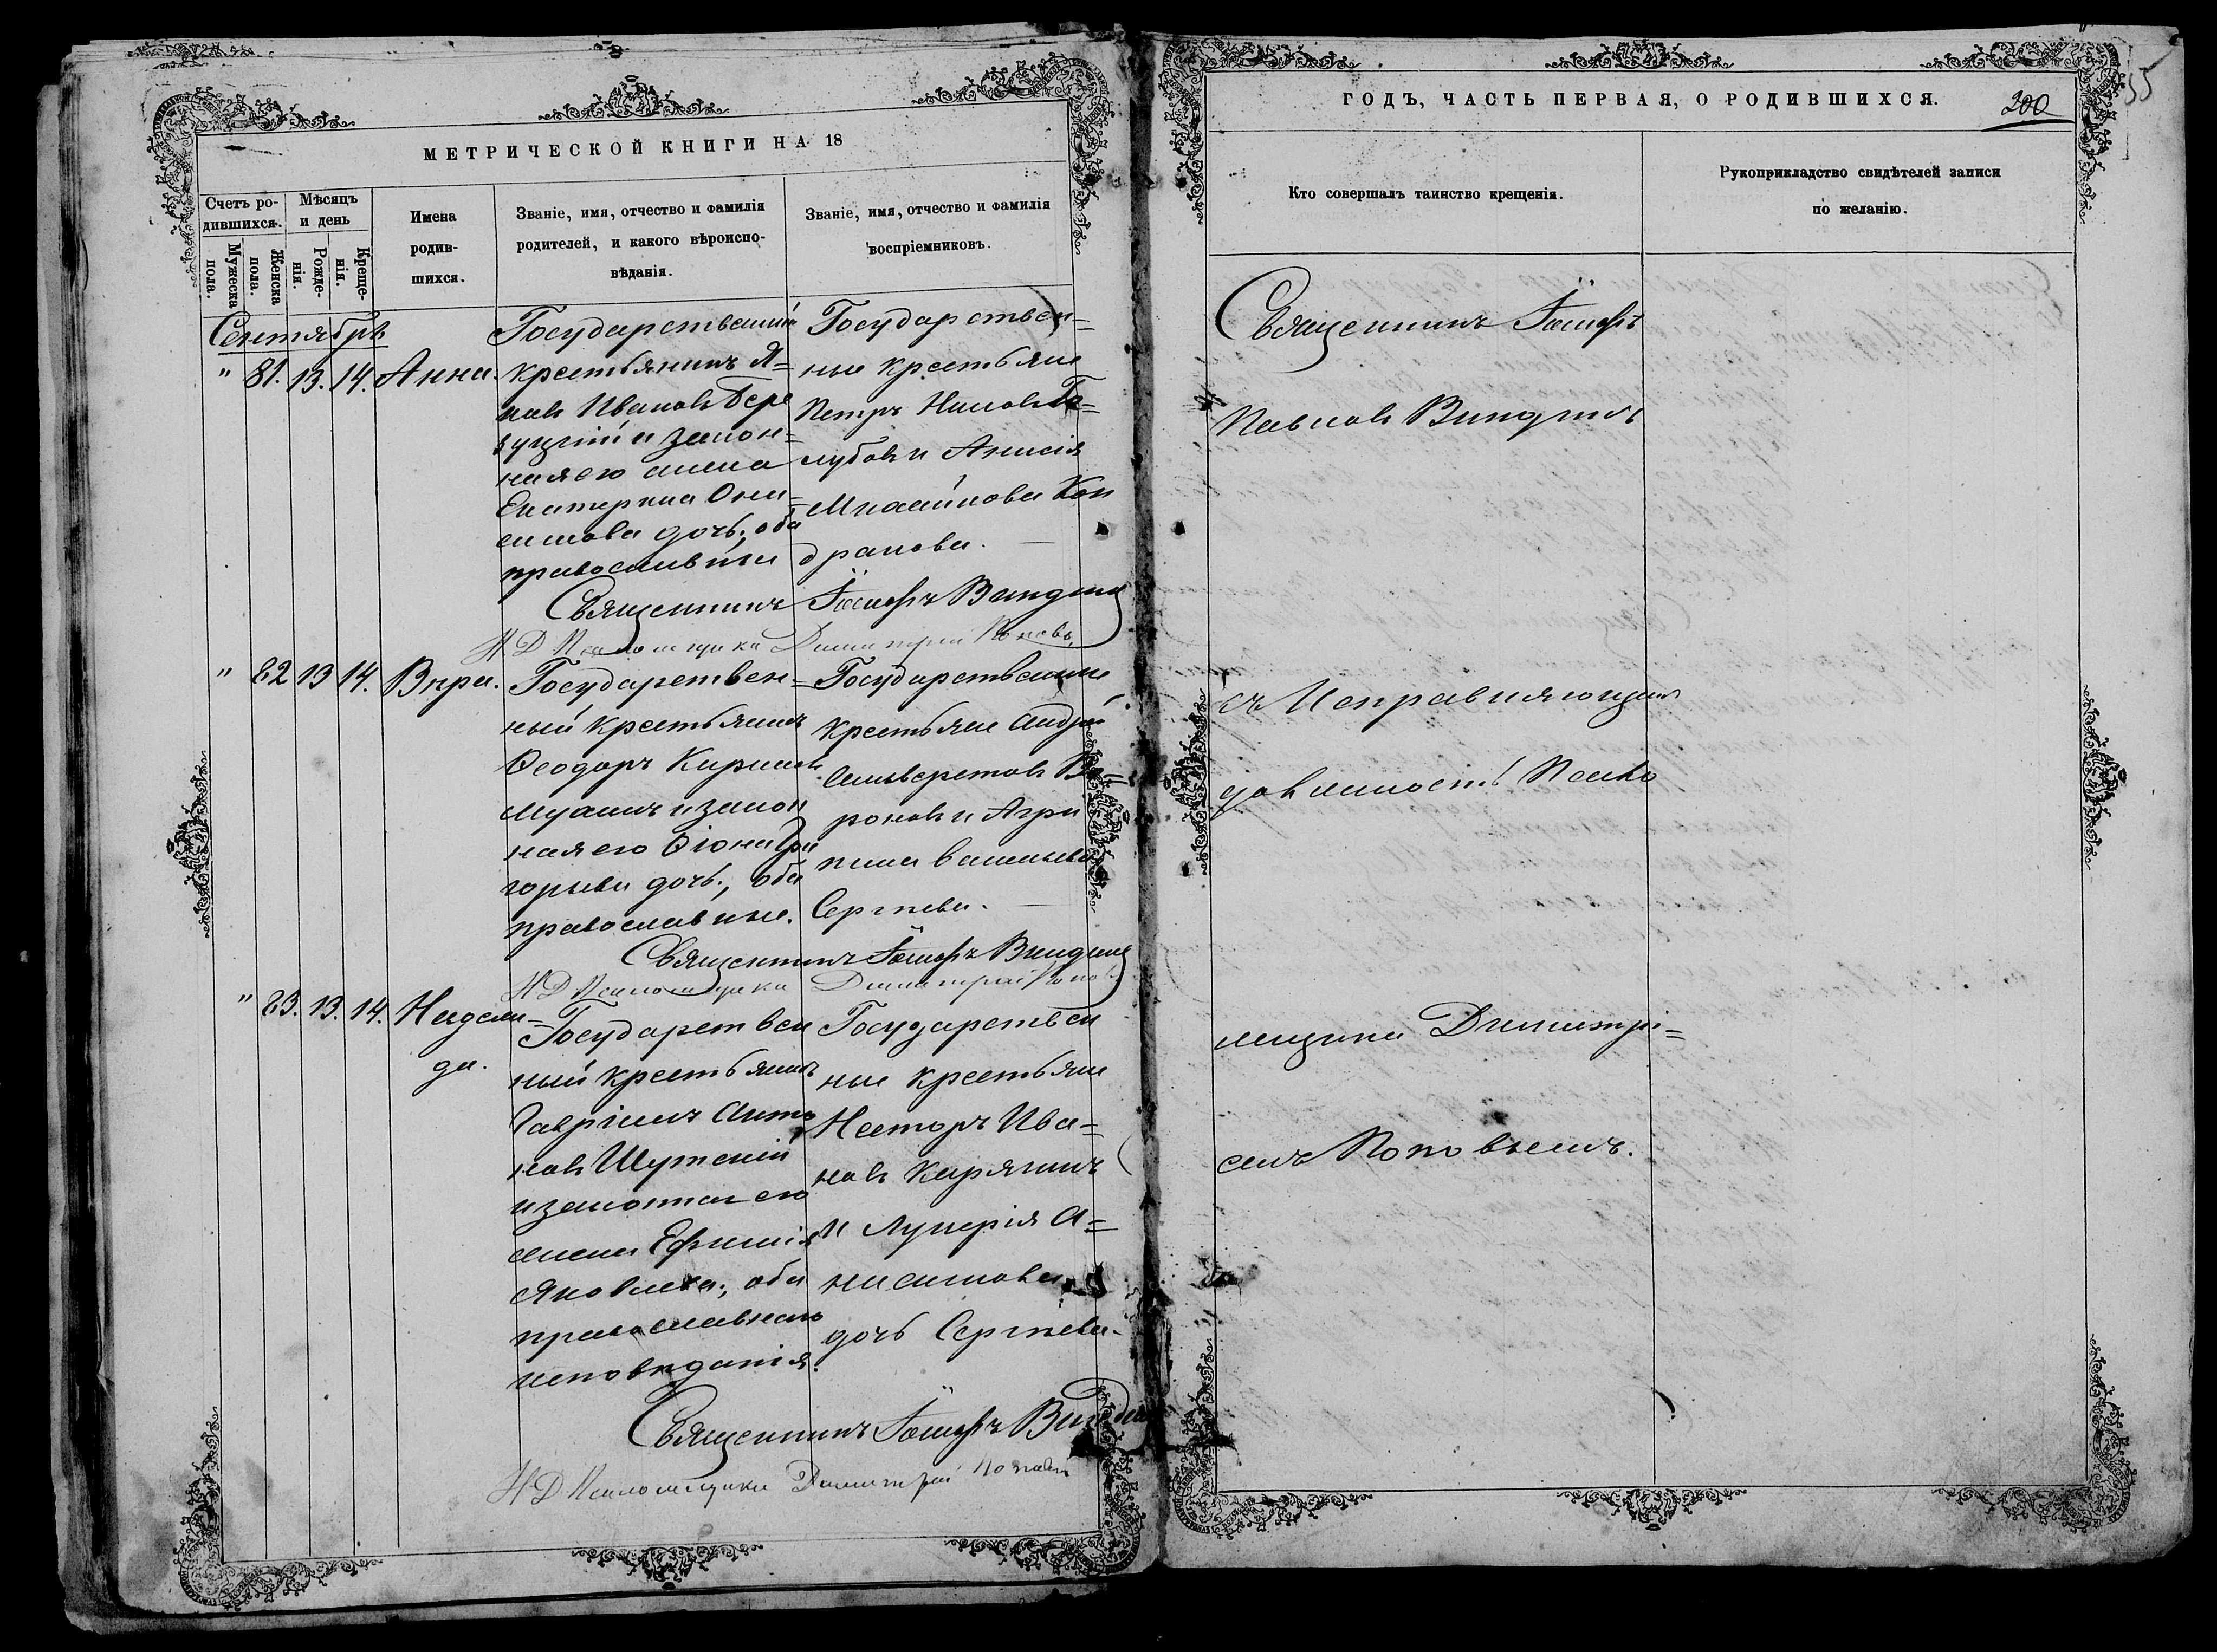 МЕТРИЧЕСКОЙ КНИГИ НА 18
Счетъ ро-
дившихся.
Мѣсяцъ
и день
Мужеска
пола.
Женска
пола.
Рожде-
нія.
Креще-
нія.
Имена
родив-
шихся.
Званіе, имя, отчество и фамилія
родителей, и какого вѣроиспо-
вѣданія.
Званіе, имя, отчество и фамилія
воспріемниковъ.
Сентябрь
" 81. 13. 14. Анна.
Государственный
крестьянинъ Я=
ковъ Ивановъ Бере
и закон=
ная его жена
Екатерина Они=
симова дочь, оба
православные
Государствен=
ные крестьяне
Петръ Ниловъ Го=
лубовъ и Анисія
Кон
дранова.
Священникъ Іосифъ Виндинъ
И Д Псаломщика Димитрій Поповъ
" 82 13 14. Вѣра.
Государствен=
ный крестьянинъ
Ѳеодоръ Кирилл
и закон
ная его Ѳіона Гри
горьева дочь, оба
православные.
Государственные
крестьяне Андрей
Селиверстовъ Во=
роновъ и Агри
пина Васильева
Сергѣева.
Священникъ Іосифъ Виндинъ
И Д Псаломщика Димитрій Поповъ
" 83. 13. 14. Надеж=
да.
Государствен
ный крестьянинъ
Гавріилъ Анто
новъ Шутскій
и законная его
жена Ефимія
Яковлева, оба
православнаго
исповѣданія.
Государствен
ные крестьяне
Несторъ Ива=
новъ Карягинъ
и Лукерія А=
нисимова
дочь Сергѣева.
Священникъ Іосифъ Виндинъ
И Д Псаломщика Димитрій Поповъ
ГОДЪ, ЧАСТЬ ПЕРВАЯ, О РОДИВШИХСЯ.
200
55
Кто совершалъ таинство крещенія.
Рукоприкладство свидѣтелей записи
по желанію.
Священникъ Іосифъ
Павловъ Виндинъ
съ Исправляющимъ
должность Псало
мщика Димитрі=
емъ Поповымъ.